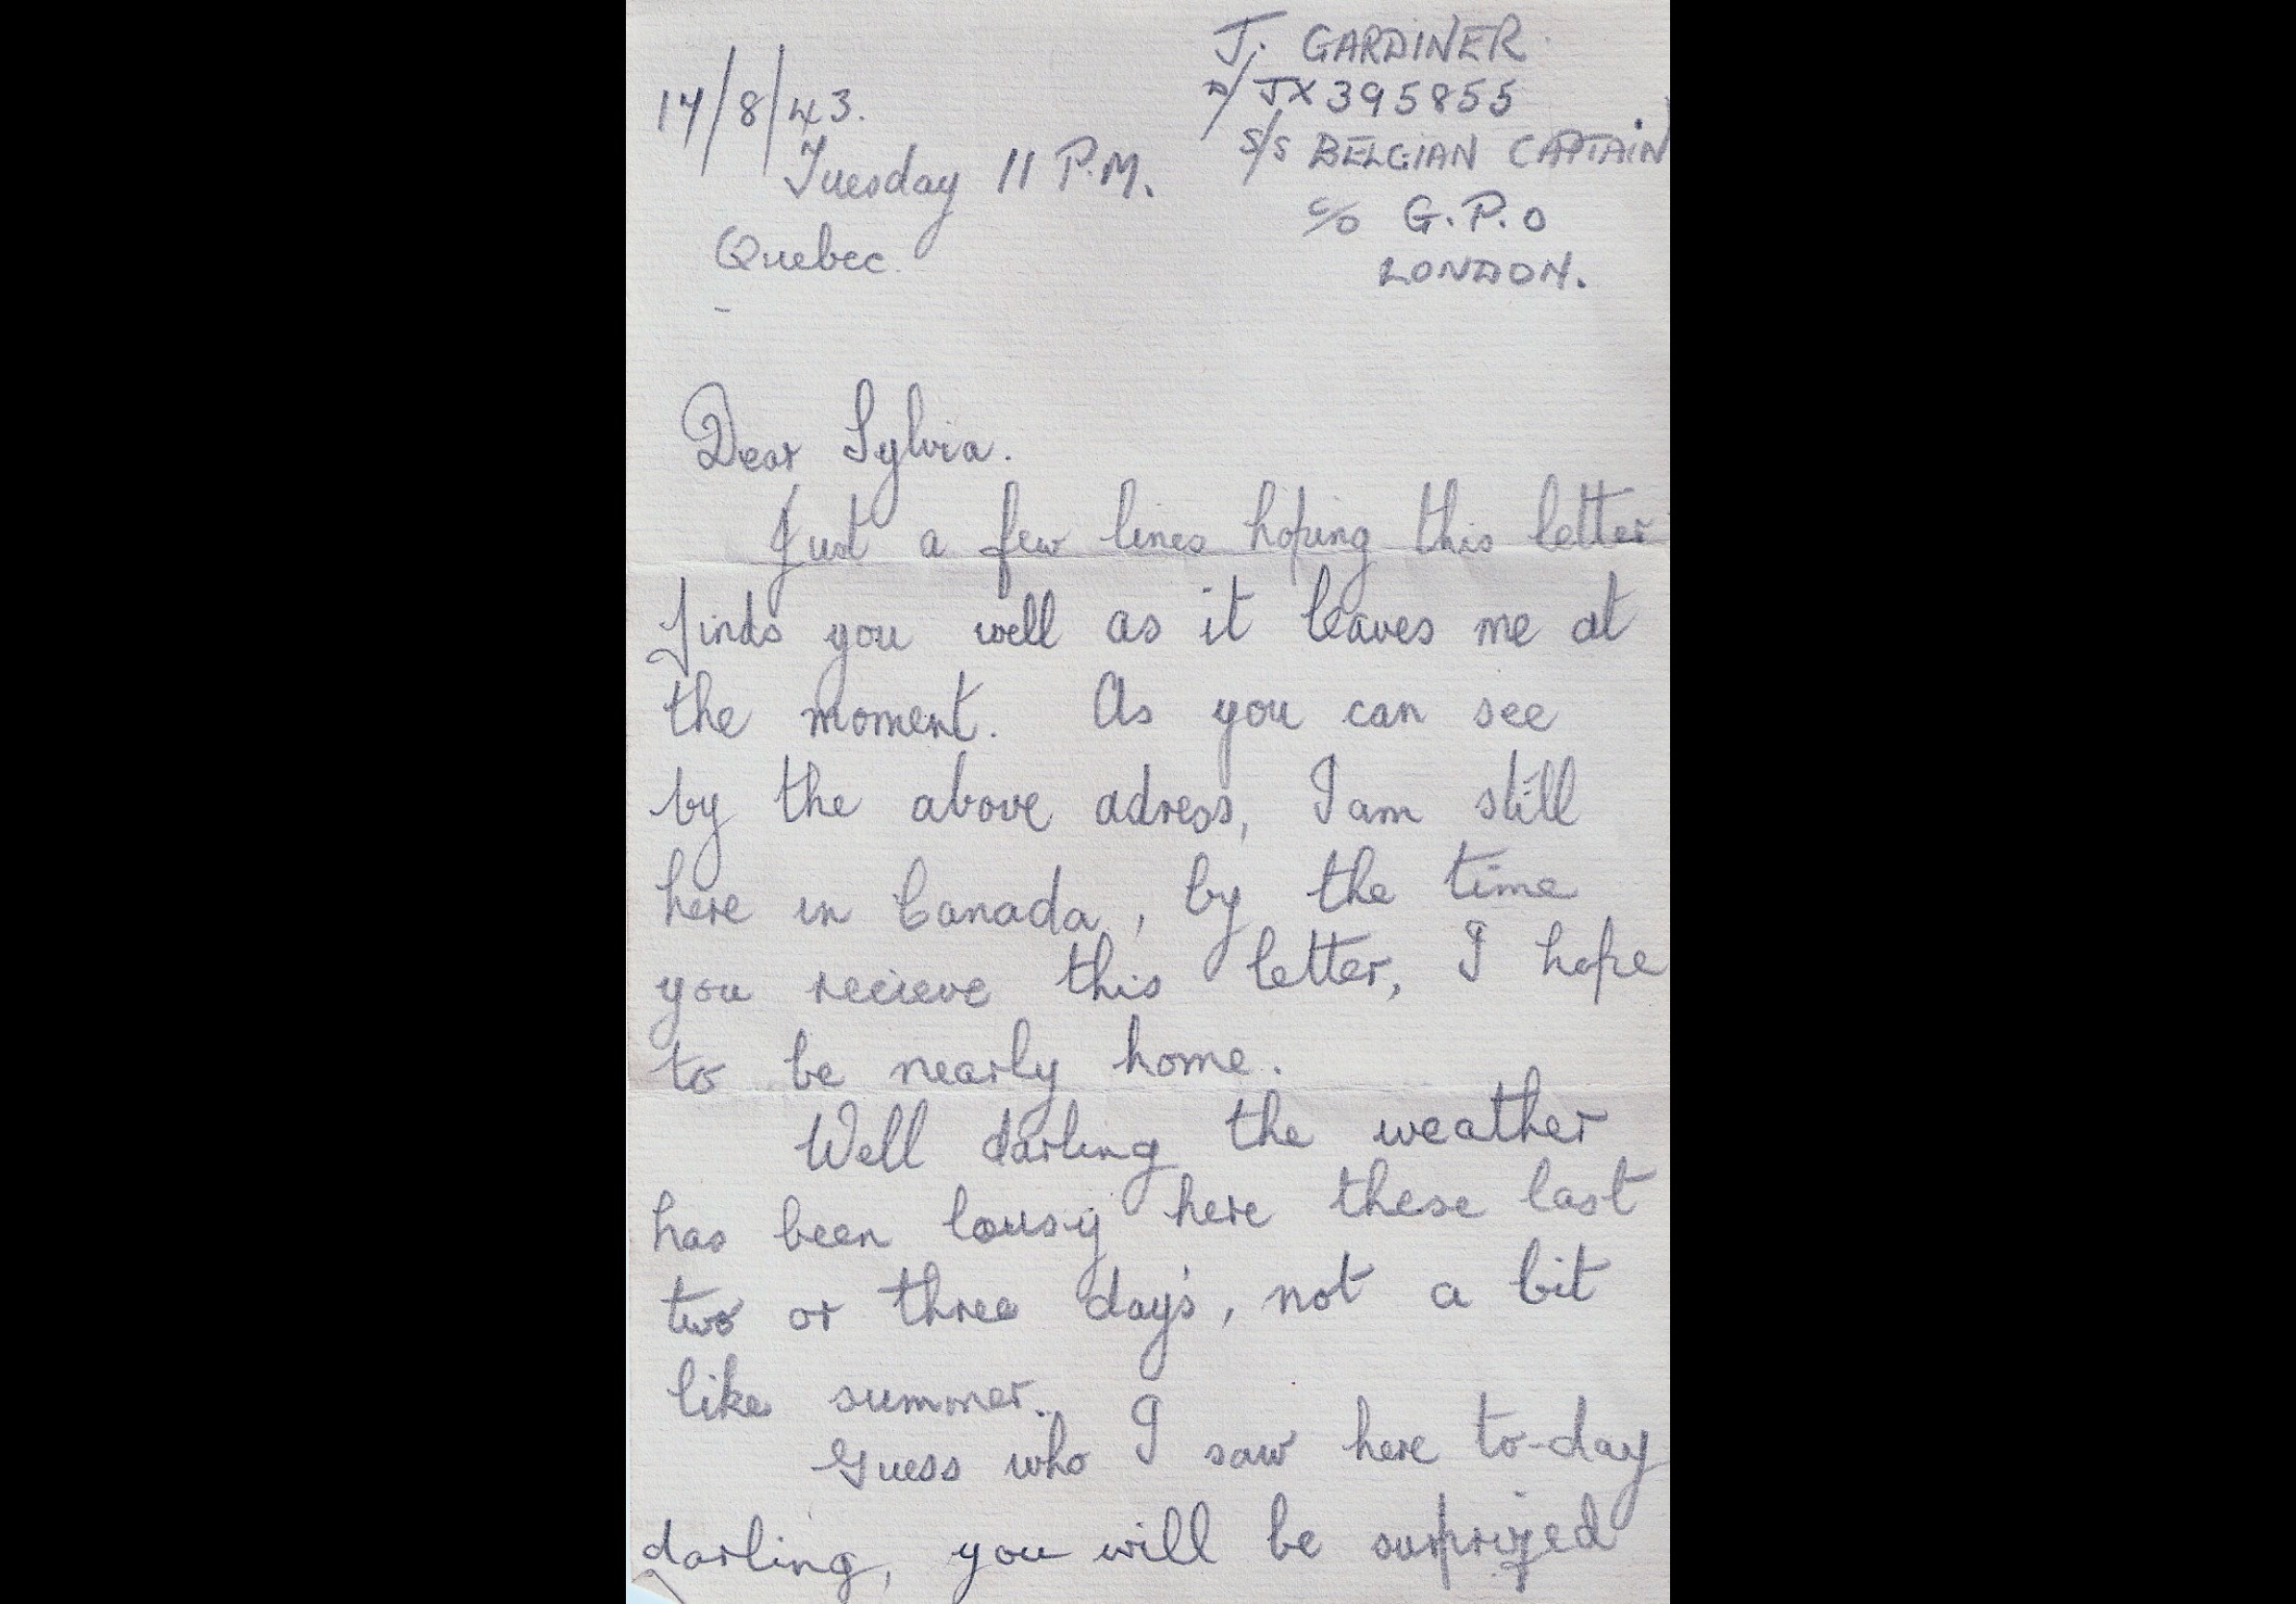 J. GARDINER
D/JX395855
17/8/43.
S/S BELGIAN CAPTAIN
Tuesday 11 P.M.
c/o G.P.O
Quebec.
LONDON.
Dear Sylvia.
Just a few lines hoping this letter
finds you well as it leaves me at
the moment. As you can see
by the above adress, I am still
here in Canada, by the time
you recieve this letter, I hope
to be nearly home.
Well darling the weather
has been lousy here these last
two or three day's, not a bit
like summer.
Guess who I saw here to-day
darling, you will be surprized